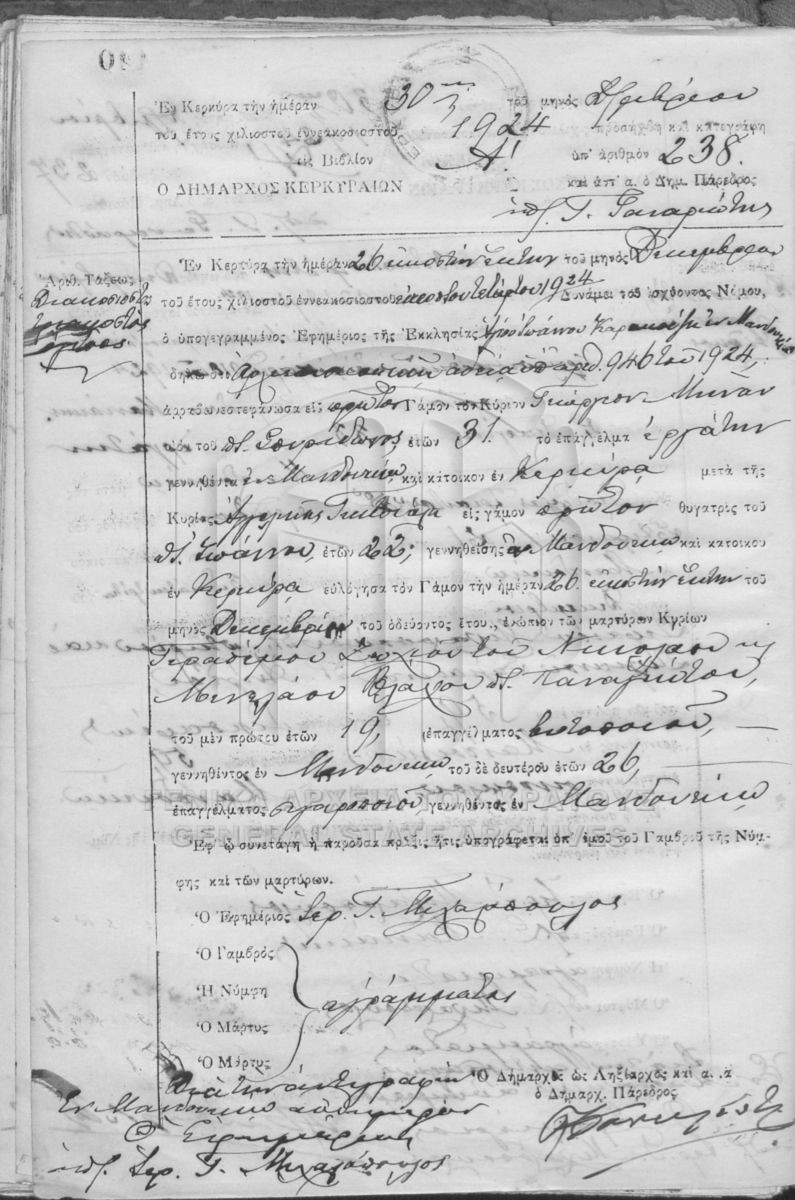 Ἐν Κερκύρᾳ τὴν ἡμέραν 30 τοῦ μηνὸς Δεκεμβρίου
τοῦ ἔτους χιλιοστοῦ ἐννεακοσιοστοῦ 1924 προσήχθη καὶ κατεγράφη
εἰς Βιβλίον Α! ὑπ' ἀριθμὸν 238.
Ο ΔΗΜΑΡΧΟΣ ΚΕΡΚΥΡΑΙΩΝ καὶ ἀπ' α. ὁ Δημ. Πάρεδρος
Ἀριθ. Τάξεως
Διακοσιοστὸς
τριακοστὸς
Ἐν Κερκύρᾳ τὴν ἡμέραν 26 εἰκοστὴν ἕκτην τοῦ μηνὸς Δεκεμβρίου
τοῦ ἔτους χιλιοστοῦ ἐννεακοσιοστοῦ εἰκοστοῦ τετάρτου 1924 Δυνάμει τοῦ ἰσχύοντος Νόμου,
ὁ ὑπογεγραμμένος Ἐφημέριος τῆς Ἐκκλησίας Ἁγίου Ἰωάννου
δηλῶ ὅτι ἀριθ. 946 τοῦ 1924,
ἀρραβωνεστεφάνωσα εἰς πρῶτον Γάμον τὸν Κύριον Γεώργιον Μηνᾶν
υἱὸν τοῦ Σπυρίδωνος, ἐτῶν 31 τὸ ἐπάγγελμα ἐργάτην
γεννηθέντα ἐν Μανδουκίῳ, καὶ κάτοικον ἐν Κερκύρᾳ μετὰ τῆς
Κυρίας Ἀγγελικῆς εἰς γάμον πρῶτον θυγατρὸς τοῦ
Ἰωάννου, ἐτῶν 22, γεννηθείσης ἐν Μανδουκίῳ καὶ κατοίκου
ἐν Κερκύρᾳ εὐλόγησα τὸν Γάμον τὴν ἡμέραν 26 εἰκοστὴν ἕκτην τοῦ
μηνὸς Δεκεμβρίου τοῦ ὁδεύοντος ἔτου., ἐνώπιον τῶν μαρτύρων Κυρίων
Γερασίμου τοῦ Νικολάου καὶ
Μενελάου Βλάχου Παναγιώτου,
τοῦ μὲν πρώτου ἐτῶν 19, ἐπαγγέλματος
γεννηθέντος ἐν Μανδουκίῳ, τοῦ δὲ δευτέρου ἐτῶν 26,
ἐπαγγέλματος σιγαροποιοῦ, γεννηθέντος ἐν Μανδουκίῳ
ΓΕΝΙΚΑ ΑΡΧΕΙΑ ΤΟΥ ΚΡΑΤΟΥΣ
GENERAL STATE ARCHIVES
Ἐφ' ᾧ συνετάγη ἡ παροῦσα πρᾶξις ἥτις ὑπογράφεται ὑπ' ἐμοῦ τοῦ Γαμβροῦ τῆς Νύμ-
φης καὶ τῶν μαρτύρων.
Ὁ Ἐφημέριος Ἱερ. Γ. Μιχαλόπουλος
Ὁ Γαμβρὸς
Ἡ Νύμφη ἀγράμματοι
Ὁ Μάρτυς
Ὁ Μάρτυς
Διὰ τὴν ἀντιγραφὴν
Ἐν Μανδουκίῳ
Ὁ Ἐφημέριος
Ἱερ. Γ. Μιχαλόπουλος
Ὁ Δήμαρχος ὡς Ληξίαρχος καὶ α. α
ὁ Δήμαρχ. Πάρεδρος